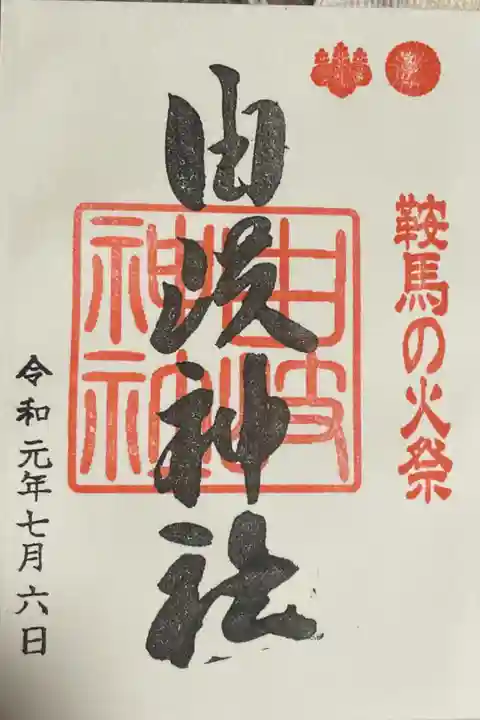 鞍馬の火祭
由岐神社
令和元年七月六日